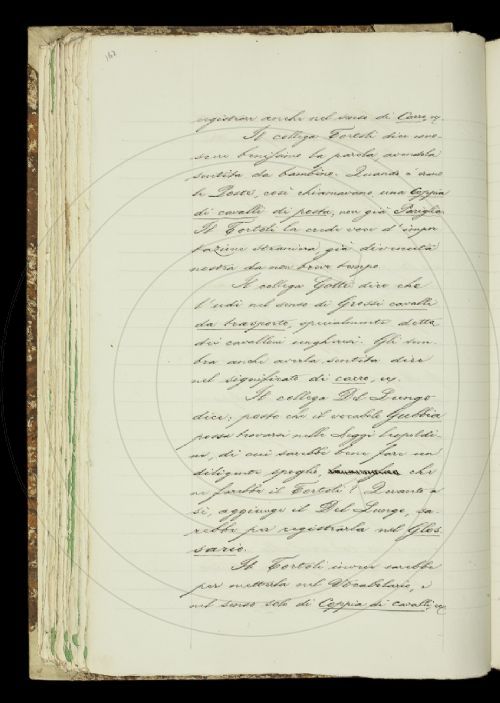 162
registrare anche nel senso di Cocce, ec.
Il collega Tortoli dice cono-
scere benissimo la parola avendola
sentita da bambino. Quando c'erano
le Poste, così chiamavano una Coppia
di cavalli di posta, non già Pariglia.
Il Tortoli la crede voce d'impor-
tazione straniera già divenuta
nostra da non breve tempo.
Il collega Gotti dice che
l'udì nel senso di Grossi cavalli
da trasporto, specialmente detto
dei cavalloni ungheresi. Gli sem-
bra anche averla sentita dire
nel significato di cocce, ec.
Il collega Del Lungo
dice: posto che il vocabolo Gubbia
possa trovarsi nelle Leggi leopoldi-
ne, di cui sarebbe bene fare un
diligente spoglio, che
ne farebbe il Tortoli? Quanto a
sè, aggiunge il Del Lungo, sa-
rebbe per registrarla nel Glos-
sario.
Il Tortoli invece sarebbe
per metterla nel Vocabolario, e
nel senso solo di Coppia di cavalli, ec.